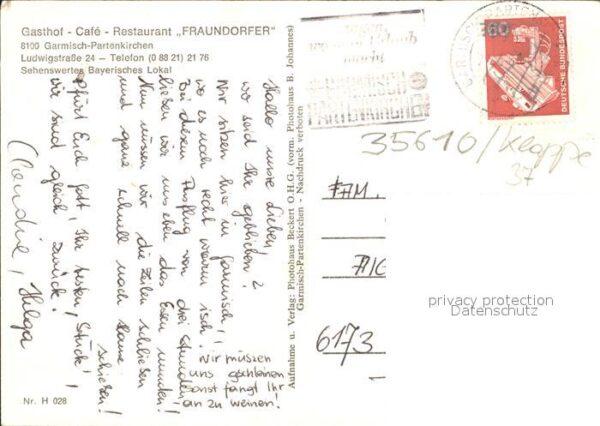 Gasthof - Café - Restaurant „FRAUNDORFER"
8100 Garmisch-Partenkirchen
Ludwigstraße 24 — Telefon (0 88 21) 21 76
Sehenswertes Bayerisches Lokal
Hallo unsre Lieben,
wo sind Ihr geblieben?
Wir sitzen hier in Garmisch,
wo es noch recht warm isch.
Bei diesem Ausflug von drei Stunden
ließen wir uns eben das Essen munden!
Nun müssen wir die Zeilen schließen
und ganz schnell nach Hause
schießen!
Pfürt Eich Gott, Ihr besten Stück'
wir sind gleich zurück!
Claudia, Helga
Wir müssen
uns
sonst fangt Ihr
an zu weinen!
Nr. H 028
Aufnahme u. Verlag: Photohaus Beckert O.H.G. (vorm. Photohaus B. Johannes)
Garmisch-Partenkirchen - Nachdruck verboten
GARMISCH
PARTENKIRCHEN
60
DEUTSCHE BUNDESPOST
35610/Klappe
37
FAM.
6173
privacy protection
Datenschutz